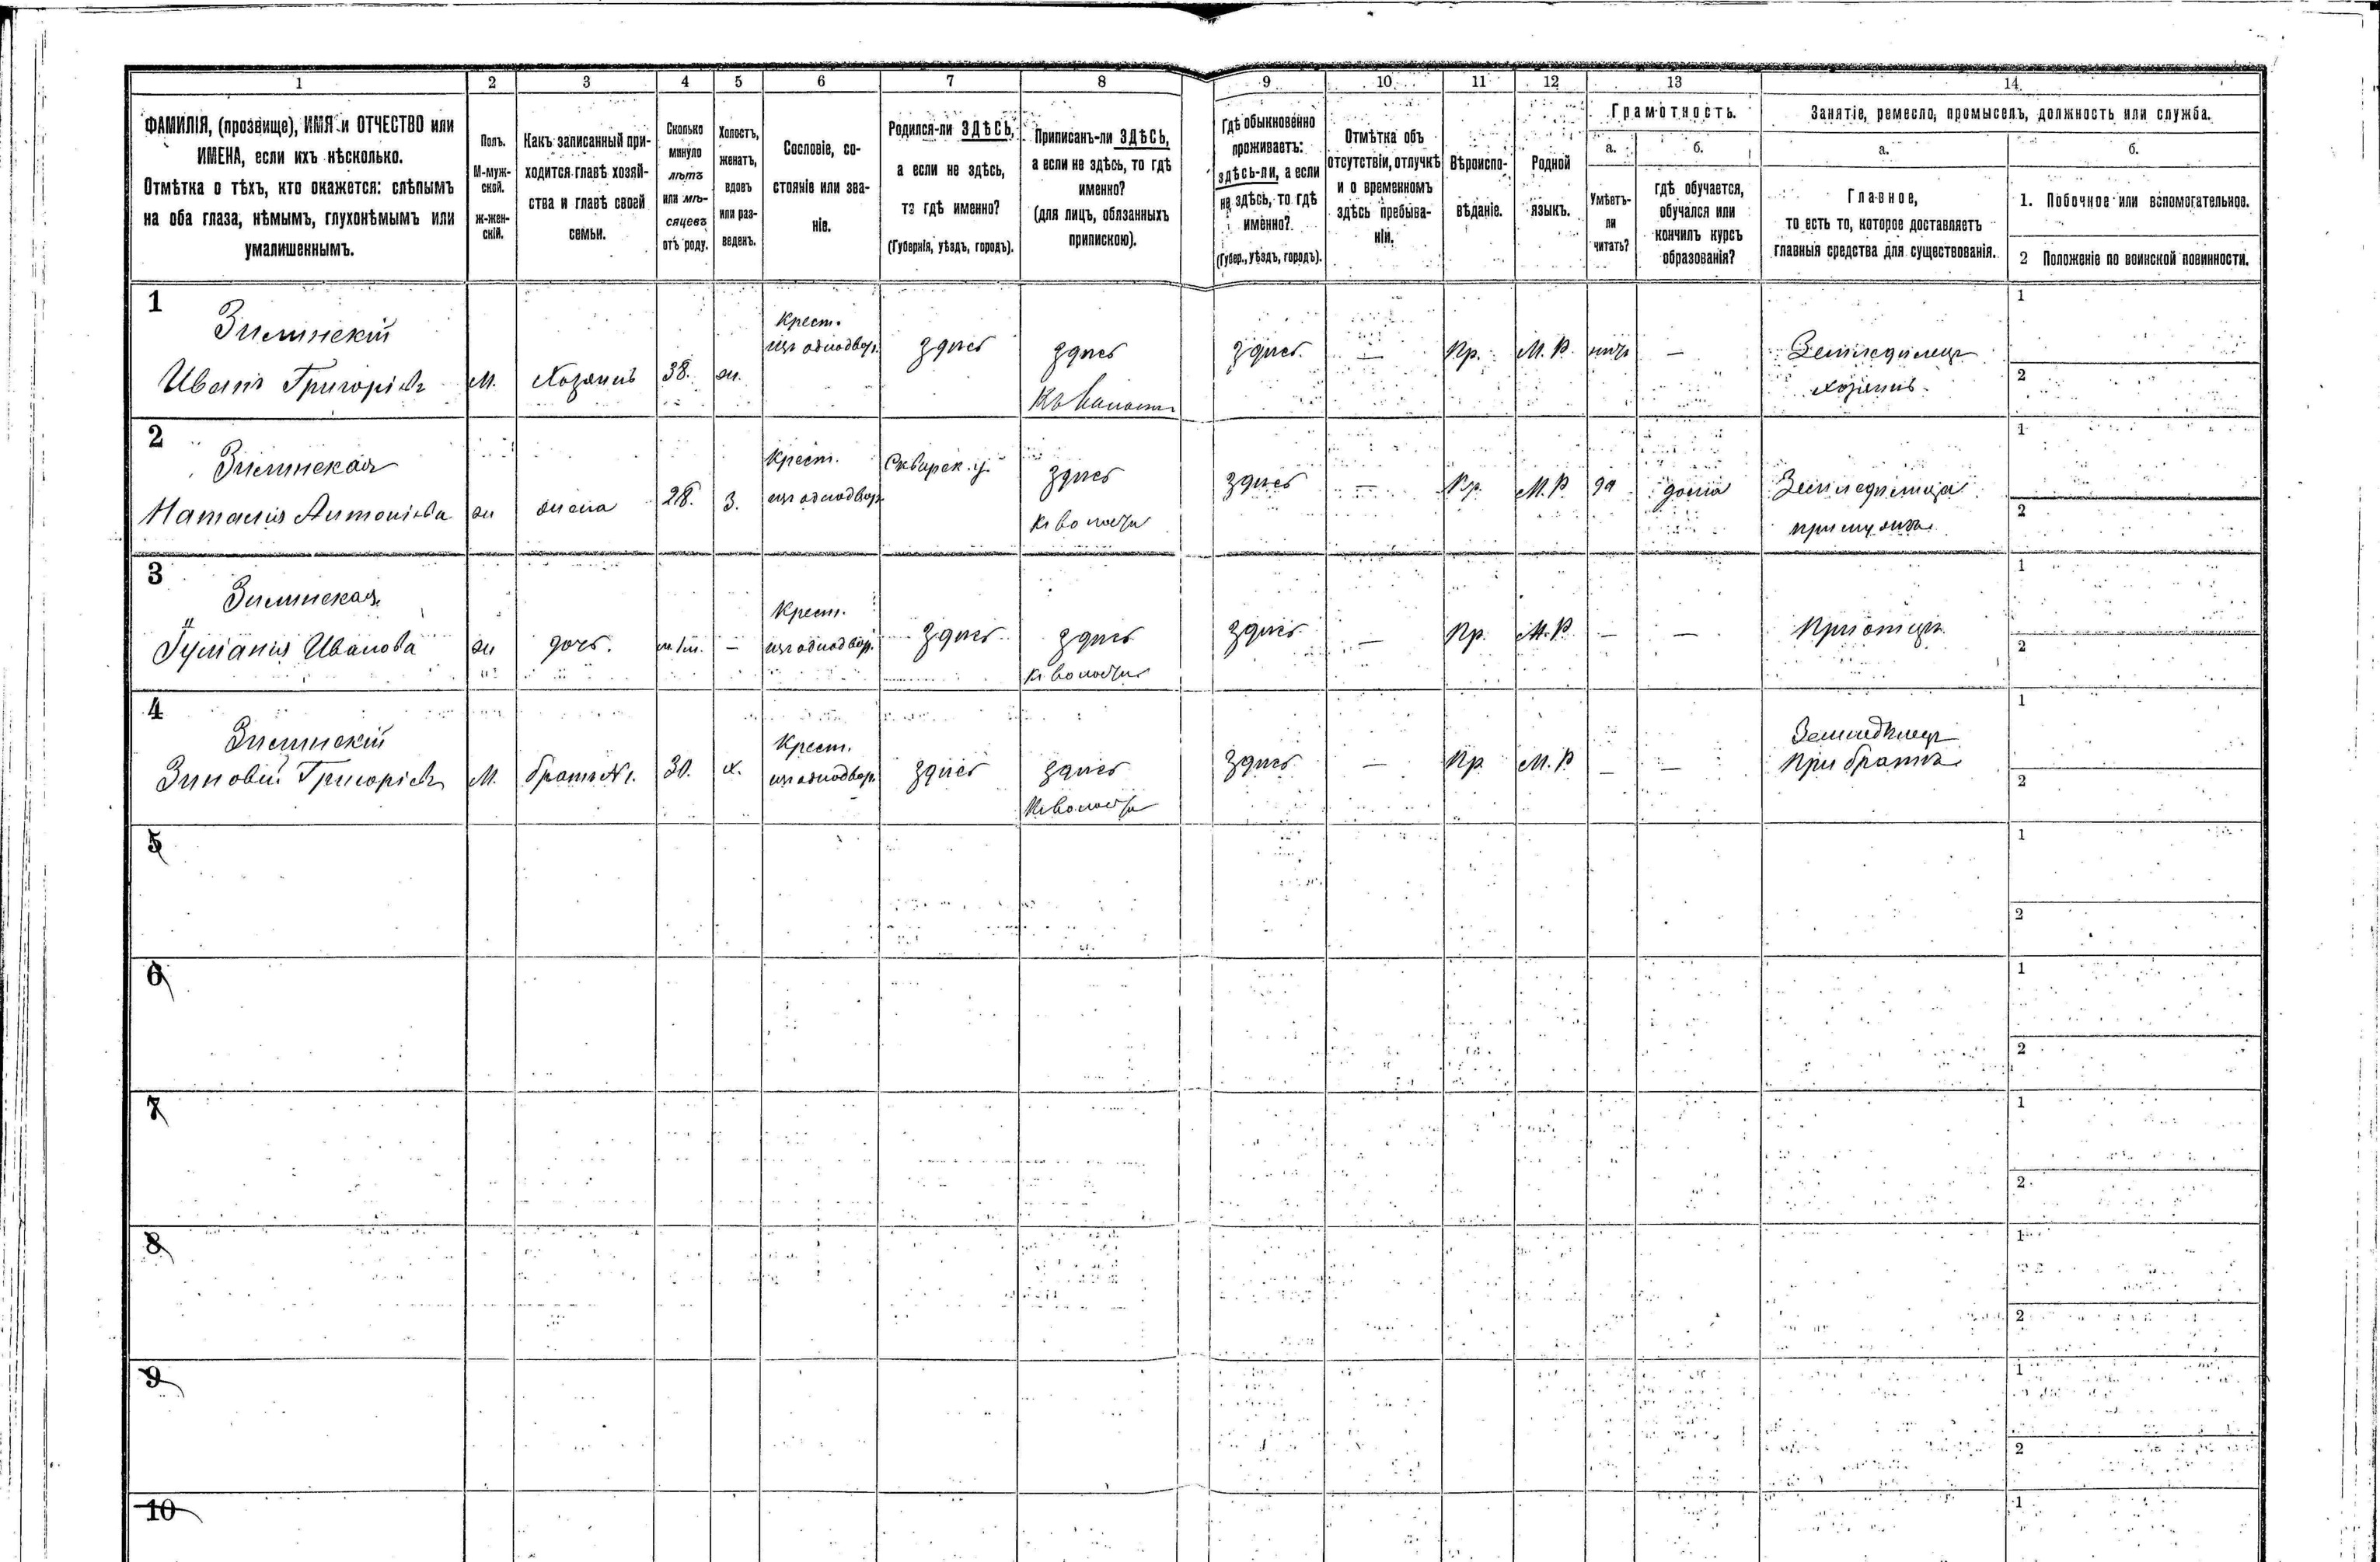 1 2 3 4 5 6 7 8 9 10 11 12 13 14
ФАМИЛІЯ, (прозвище), ИМЯ и ОТЧЕСТВО или
ИМЕНА, если ихъ нѣсколько.
Отмѣтка о тѣхъ, кто окажется: слѣпымъ
на оба глаза, нѣмымъ, глухонѣмымъ или
умалишеннымъ.
Полъ.
М-муж-
ской.
ж-жен-
скій.
Какъ записанный при-
ходится главѣ хозяй-
ства и главѣ своей
семьи.
Сколько
минуло
лѣтъ
или мѣ-
сяцевъ
отъ роду.
Холостъ,
женатъ,
вдовъ
или раз-
веденъ.
Сословіе, со-
стояніе или зва-
ніе.
Родился-ли ЗДѢСЬ,
а если не здѣсь,
то гдѣ именно?
(Губернія, уѣздъ, городъ).
Приписанъ-ли ЗДѢСЬ,
а если не здѣсь, то гдѣ
именно?
(для лицъ, обязанныхъ
припискою).
Гдѣ обыкновенно
проживаетъ:
здѣсь-ли, а если
не здѣсь, то гдѣ
именно?
(Губер., уѣздъ, городъ).
Отмѣтка объ
отсутствіи, отлучкѣ
и о временномъ
здѣсь пребыва-
ніи.
Вѣроиспо-
вѣданіе.
Родной
языкъ.
Грамотность.
а.
Умѣетъ-
ли
читать?
б.
гдѣ обучается,
обучался или
кончилъ курсъ
образованія?
Занятіе, ремесло, промыселъ, должность или служба.
а.
Главное,
то есть то, которое доставляетъ
главныя средства для существованія.
б.
1. Побочное или вспомогательное.
2 Положеніе по воинской повинности.
1
Зилинскій
Иванъ Григорієв
М. Хозяинъ 38. ж.
Крест.
изъ однодвор.
здѣсь
здѣсь
Къ волости
здѣсь. — Пр. М. Р. нѣтъ —
Земледѣлецъ
хозяинъ.
1
2
2
Зилинская
Наталія Антонієва
ж жена 28. З.
Крест.
изъ однодвор.
Сквирск. у.
здѣсь
къ волости
здѣсь — Пр. М. Р. да дома
Земледѣлица
при мужѣ
1
2
3
Зилинская
Іуліанія Иванова
ж дочь. —
Крест.
изъ однодвор.
здѣсь
здѣсь
къ волости
здѣсь — Пр. М. Р. — —
При отцѣ
1
2
4
Зилинскій
Зиновій Григорієв
М. братъ №1. 30. х.
Крест.
изъ однодвор.
здѣсь
здѣсь
къ волости
здѣсь — Пр М. Р — —
Земледѣлецъ
При братѣ
1
2
5
1
2
6
1
2
7
1
2
8
1
2
9
1
2
10
1